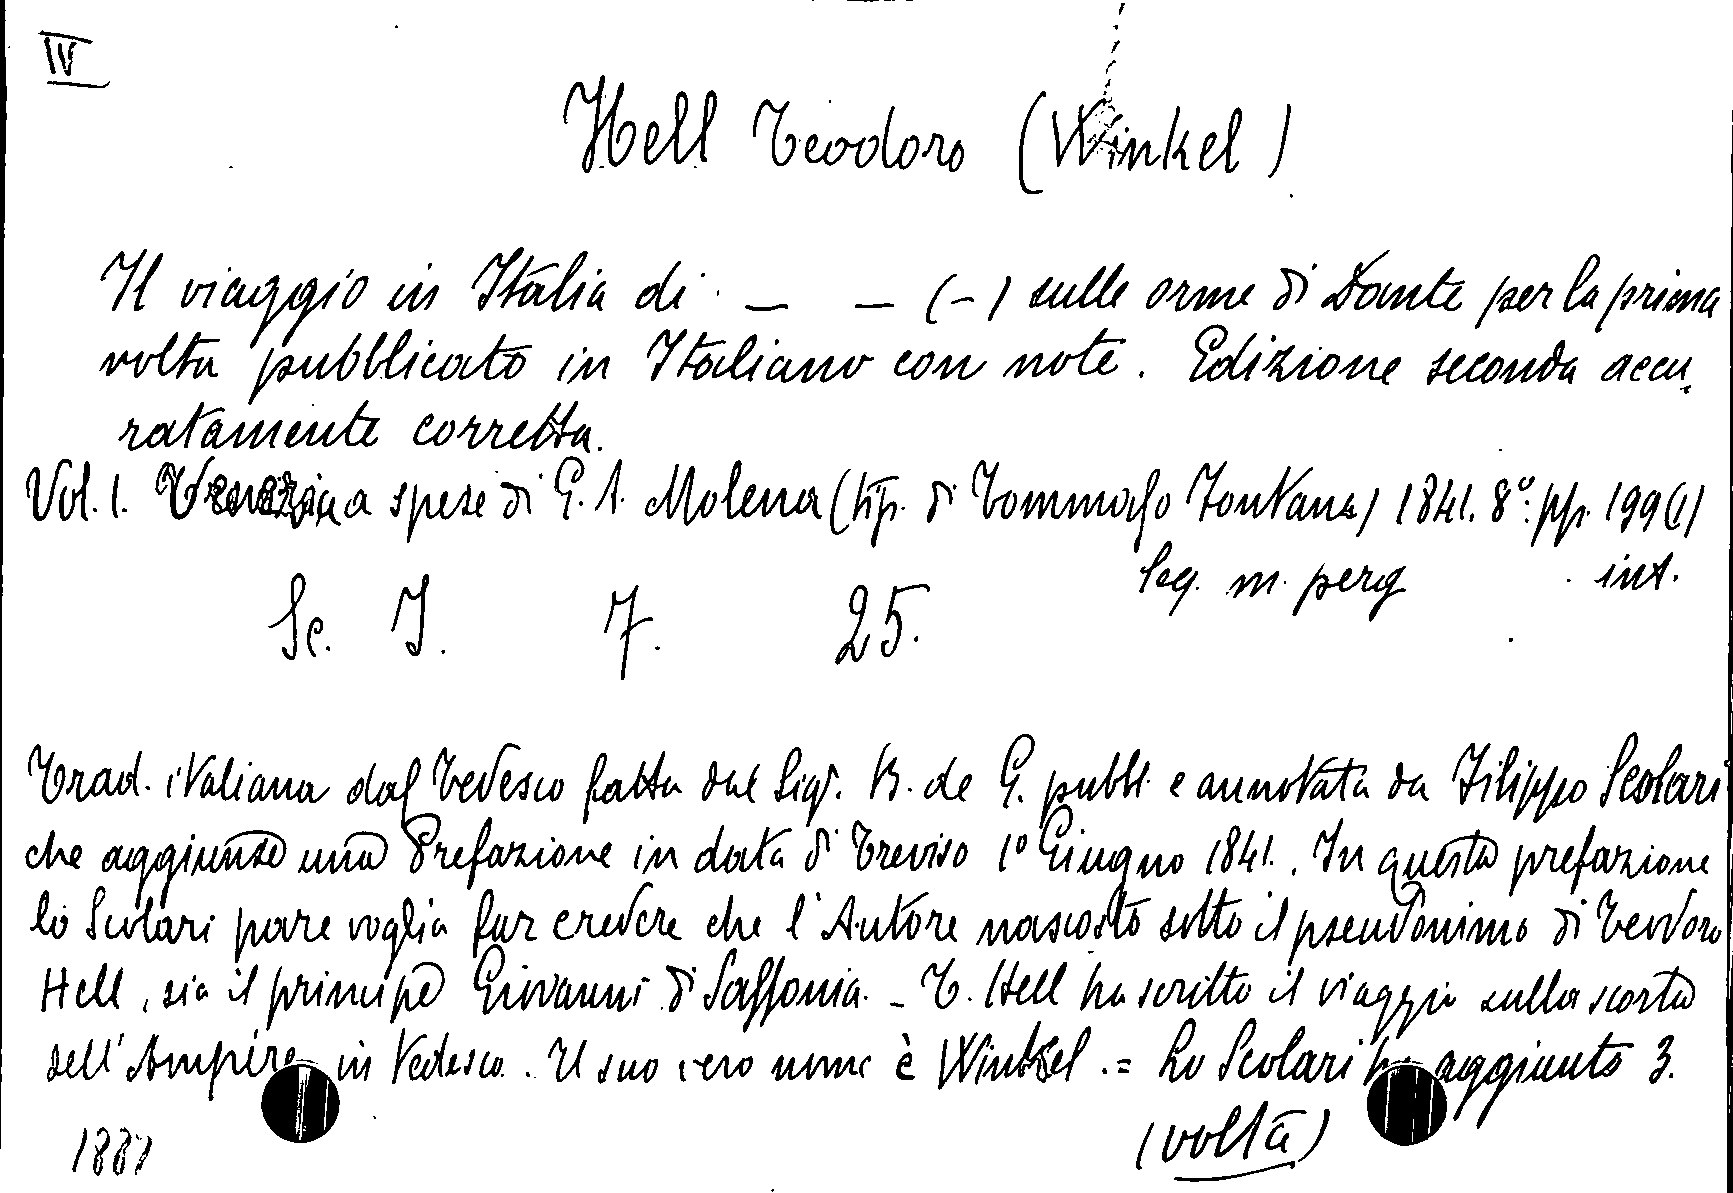 IV
Hell Teodoro (Winkel)
Il viaggio in Italia di — — (-) sulle orme di Dante per la prima
volta pubblicato in Italiano con note. Edizione seconda accu-
ratamente corretta.
Vol. I. Venezia a spese di G. A. Molena (tip. di Tommaso Fontana) 1841. 8°. pp. 199 (1)
leg. m. perg int.
Sc. I. 7. 25.
Trad. italiana dal tedesco fatta dal Sigr. B. de G. pubbl. e annotata da Filippo Scolari
che aggiunse una Prefazione in data di Treviso 1° Giugno 1841. In questa prefazione
lo Scolari pare voglia far credere che l'Autore nascosto sotto il pseudonimo di Teodoro
Hell, sia il principe Giovanni di Sassonia. - T. Hell ha scritto il viaggio sulla scorta
dell'Ampére in tedesco. Il suo vero nome è Winkel. = Lo Scolari ha aggiunto 3.
(volta)